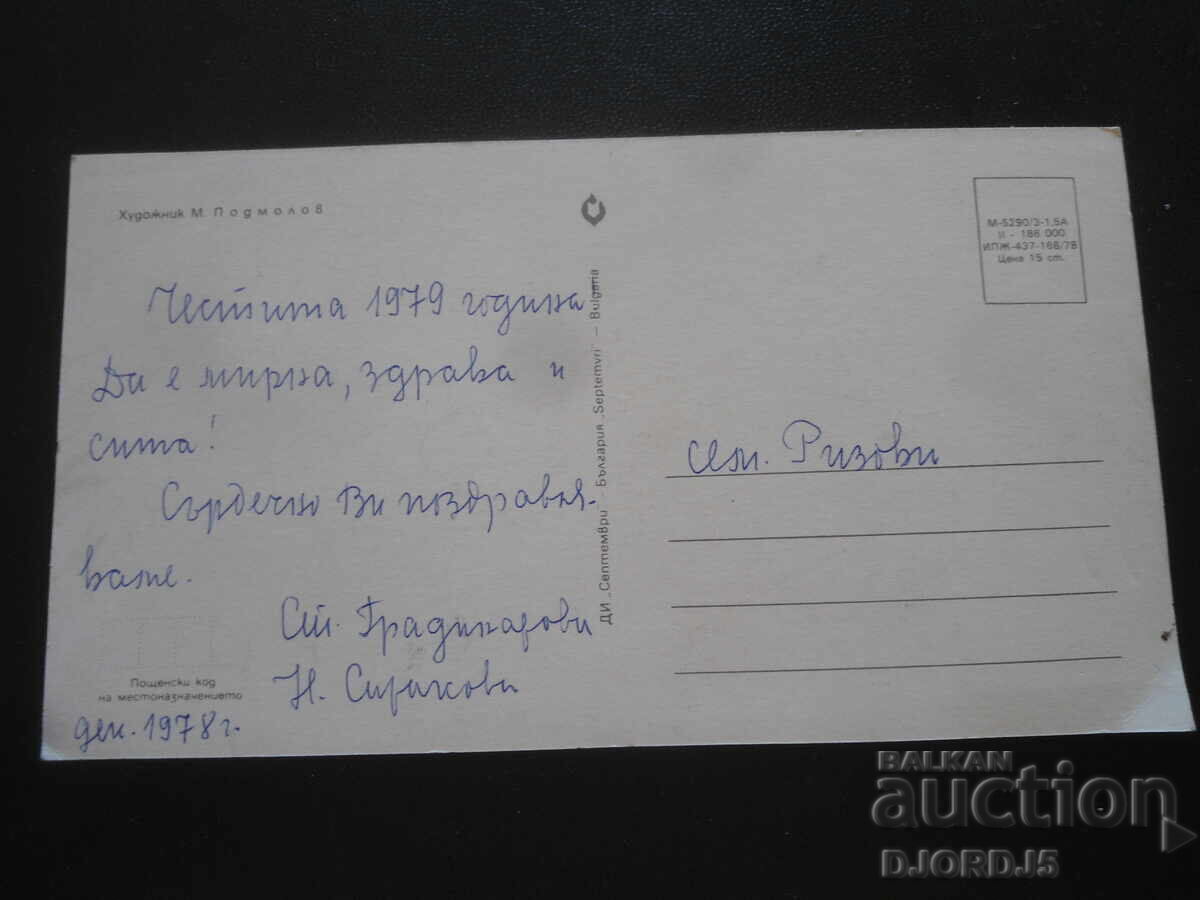 Художник М. Подмолов
Честита 1979 година
Да е мирна, здрава и
сита!
Сърдечно Ви поздравя-
ваме.
Ст. Градинарови
Н. Сиракови
Пощенски код
на местоназначението
дек. 1978 г.
ДИ „Септември" – България „Septemvri" – Bulgaria
М-5290/3-1,5А
II - 186 000
ИПЖ-437-168/78
Цена 15 ст.
сем. Ризови
BALKAN
auction
DJORDJ5